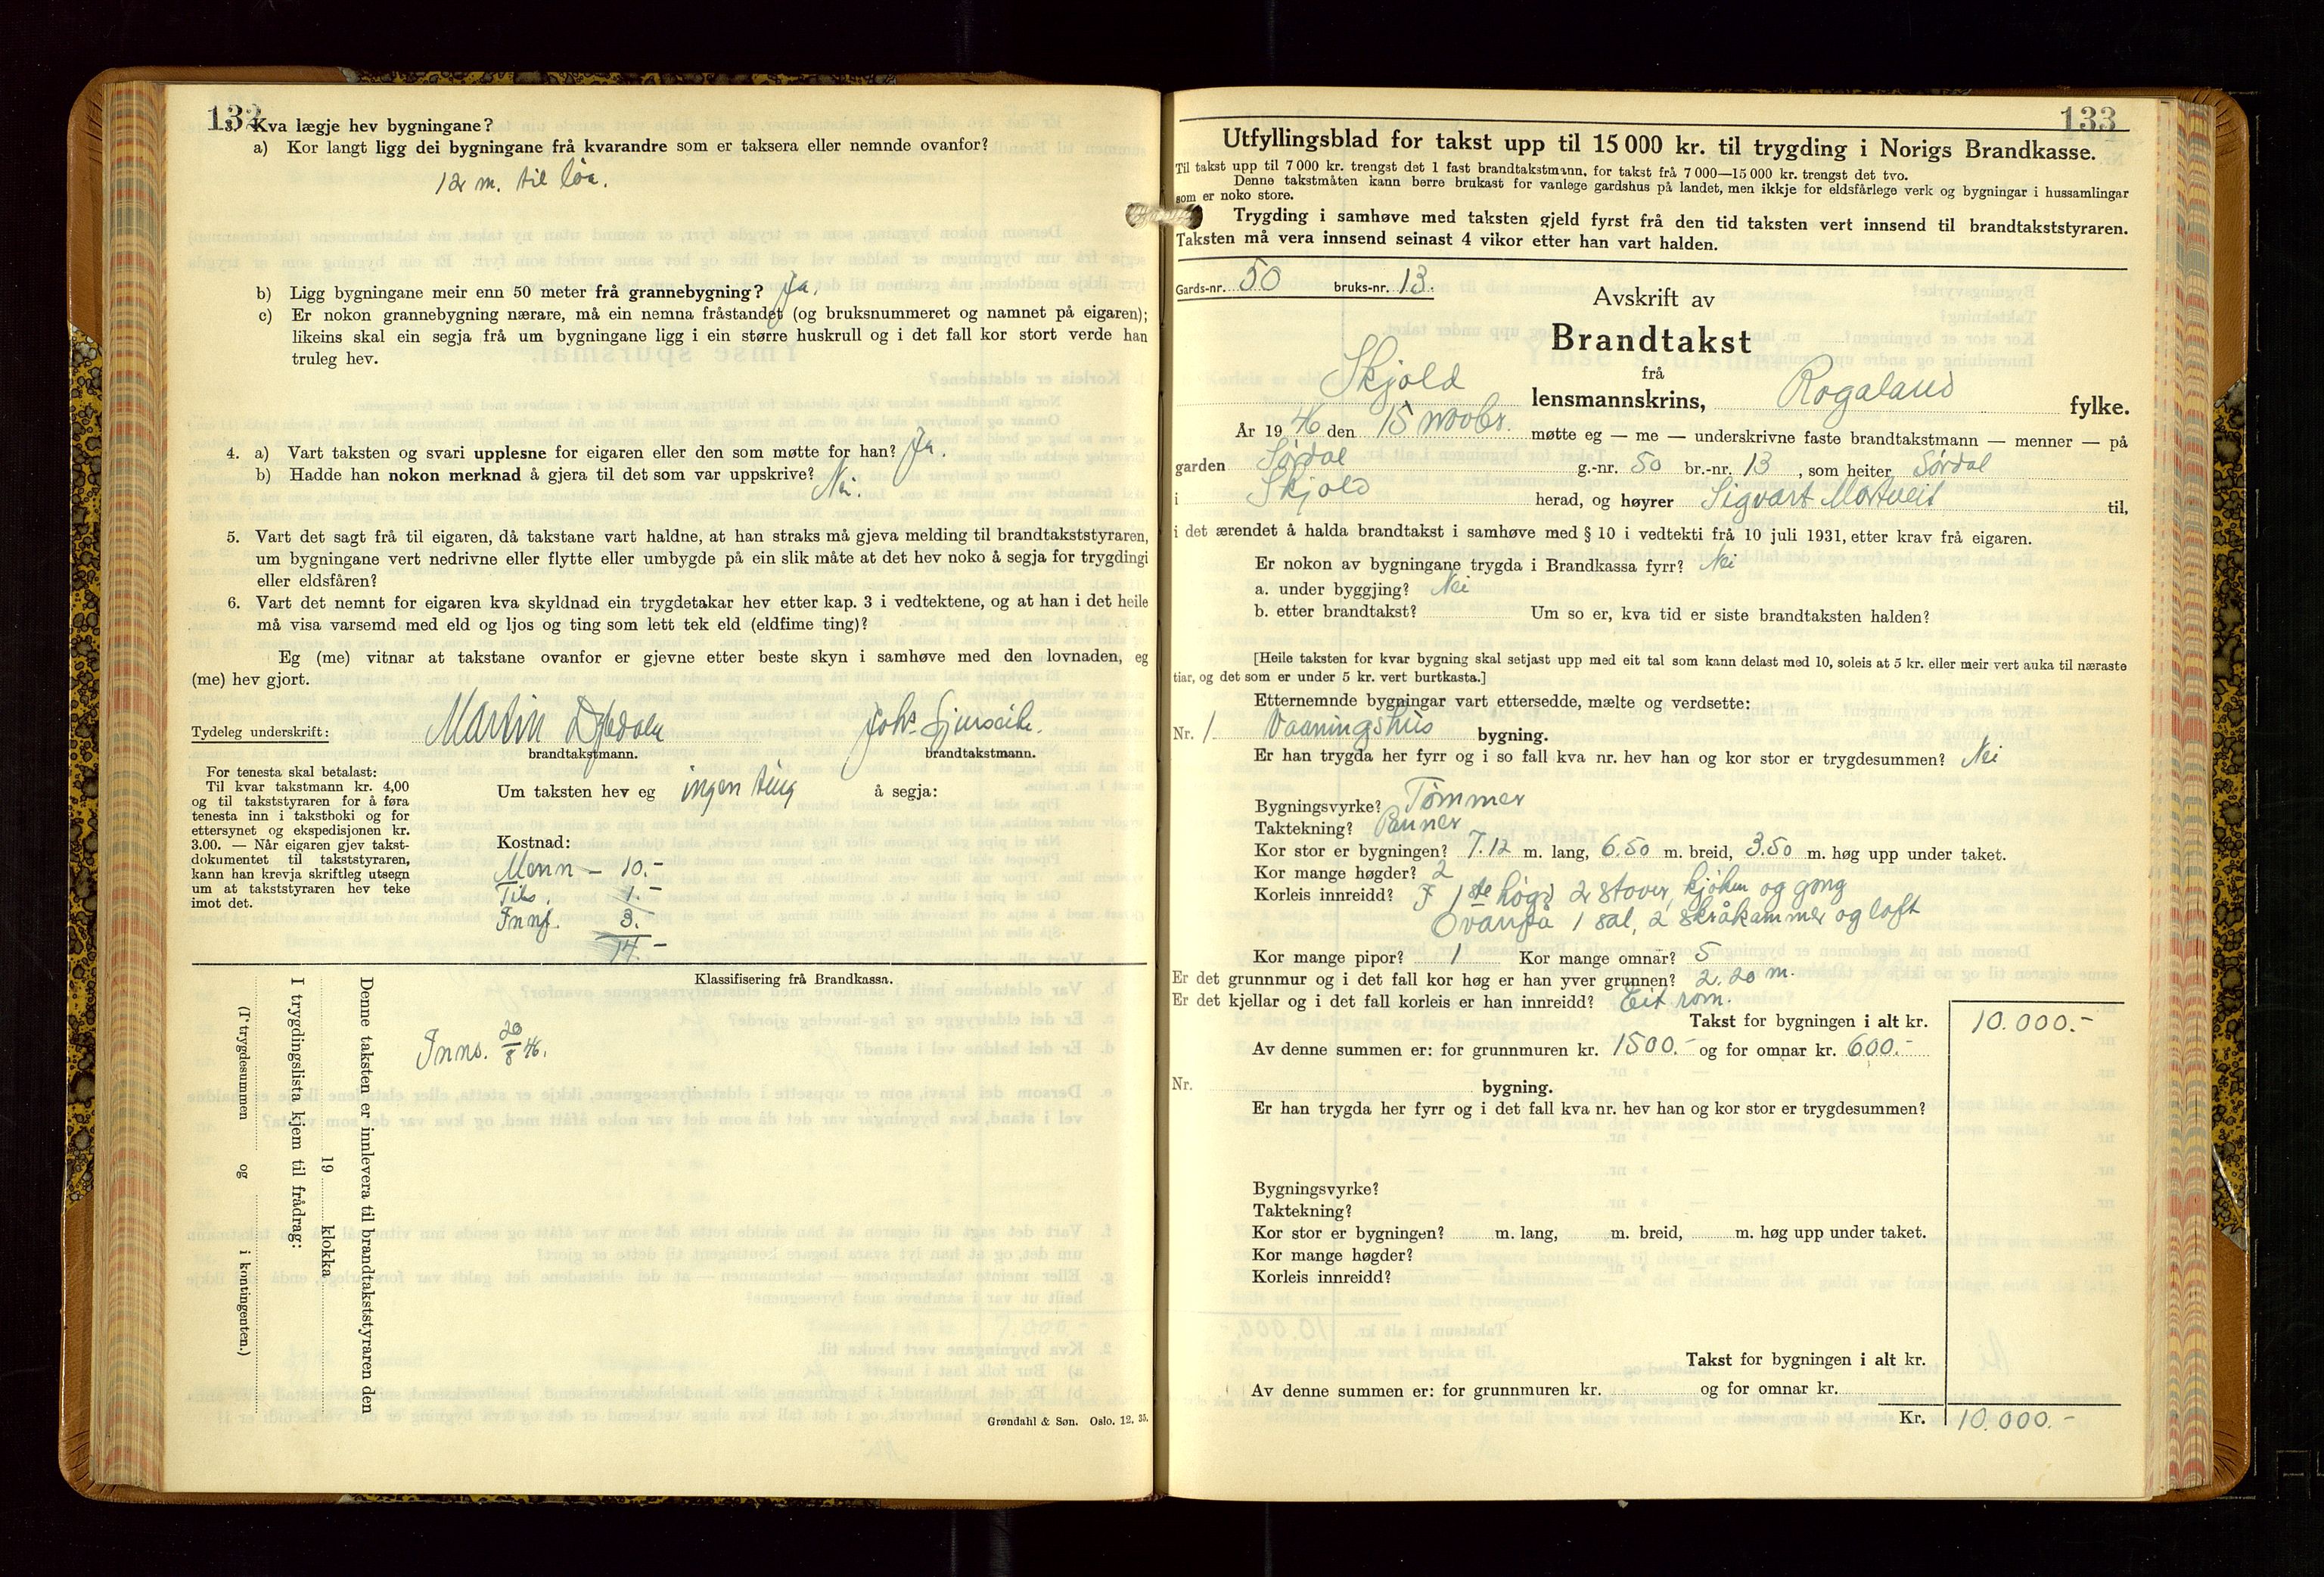 132
3. Kva lægje hev bygningane?
a) Kor langt ligg dei bygningane frå kvarandre som er taksera eller nemnde ovanfor?
12 m. til löa.
b) Ligg bygningane meir enn 50 meter frå grannebygning? Ja.
c) Er nokon grannebygning nærare, må ein nemna fråstandet (og bruksnummeret og namnet på eigaren);
likeins skal ein segja frå um bygningane ligg i ein større huskrull og i det fall kor stort verde han
truleg hev.
4. a) Vart taksten og svari upplesne for eigaren eller den som møtte for han? Ja.
b) Hadde han nokon merknad å gjera til det som var uppskrive? Nei.
5. Vart det sagt frå til eigaren, då takstane vart haldne, at han straks må gjeva melding til brandtakststyraren,
um bygningane vert nedrivne eller flytte eller umbygde på ein slik måte at det hev noko å segja for trygdingi
eller eldsfåren?
6. Vart det nemnt for eigaren kva skyldnad ein trygdetakar hev etter kap. 3 i vedtektene, og at han i det heile
må visa varsemd med eld og ljos og ting som lett tek eld (eldfime ting)?
Eg (me) vitnar at takstane ovanfor er gjevne etter beste skyn i samhøve med den lovnaden, eg
(me) hev gjort.
Tydeleg underskrift: Martin Joh.
brandtakstmann. brandtakstmann.
For tenesta skal betalast:
Til kvar takstmann kr. 4,00
og til takststyraren for å føra
tenesta inn i takstboki og for
ettersynet og ekspedisjonen kr.
3.00. — Når eigaren gjev takst-
dokumentet til takststyraren,
kann han krevja skriftleg utsegn
um at takststyraren hev teke
imot det.
Um taksten hev eg ingen ting å segja:
Kostnad:
Menn — 10.-
Tils. 1.-
Innf. 3.-
14.-
Klassifisering frå Brandkassa.
Inns. 20/8 46.
Denne taksten er innlevera til brandtakststyraren den
19 klokka
I trygdingslista kjem til frådrag:
(I trygdesummen og i kontingenten.)
Grøndahl & Søn. Oslo. 12. 35.
133
Utfyllingsblad for takst upp til 15 000 kr. til trygding i Norigs Brandkasse.
Til takst upp til 7 000 kr. trengst det 1 fast brandtakstmann, for takst frå 7 000—15 000 kr. trengst det tvo.
Denne takstmåten kann berre brukast for vanlege gardshus på landet, men ikkje for eldsfårlege verk og bygningar i hussamlingar
som er noko store.
Trygding i samhøve med taksten gjeld fyrst frå den tid taksten vert innsend til brandtakststyraren.
Taksten må vera innsend seinast 4 vikor etter han vart halden.
Gards-nr. 50 bruks-nr. 13.
Avskrift av
Brandtakst
frå
Skjold lensmannskrins, Rogaland fylke.
År 1946 den 15 novbr. møtte eg — me — underskrivne faste brandtakstmann — menner — på
garden Sørdal g.-nr. 50 br.-nr. 13, som heiter Sørdal
i Skjold herad, og høyrer Sigvart Mortveit til,
i det ærendet å halda brandtakst i samhøve med § 10 i vedtekti frå 10 juli 1931, etter krav frå eigaren.
Er nokon av bygningane trygda i Brandkassa fyrr? Nei
a. under byggjing? Nei
b. etter brandtakst? Um so er, kva tid er siste brandtaksten halden?
[Heile taksten for kvar bygning skal setjast upp med eit tal som kann delast med 10, soleis at 5 kr. eller meir vert auka til næraste
tiar, og det som er under 5 kr. vert burtkasta.]
Etternemnde bygningar vart ettersedde, mælte og verdsette:
Nr. 1 Vaaningshus bygning.
Er han trygda her fyrr og i so fall kva nr. hev han og kor stor er trygdesummen? Nei
Bygningsvyrke? Tömmer
Taktekning? Panner
Kor stor er bygningen? 7.12 m. lang, 6.50 m. breid, 3.50 m. høg upp under taket.
Kor mange høgder? 2
Korleis innreidd? I 1ste högd 2 stover, kjöken og gang
Ovanpå 1 sal, 2 skråkammer og loft
Kor mange pipor? 1 Kor mange omnar? 5
Er det grunnmur og i det fall kor høg er han yver grunnen? 2.20 m.
Er det kjellar og i det fall korleis er han innreidd? Eit rom.
Takst for bygningen i alt kr. 10.000.-
Av denne summen er: for grunnmuren kr. 1500.- og for omnar kr. 600.-
Nr. bygning.
Er han trygda her fyrr og i det fall kva nr. hev han og kor stor er trygdesummen?
Bygningsvyrke?
Taktekning?
Kor stor er bygningen? m. lang, m. breid, m. høg upp under taket.
Kor mange høgder?
Korleis innreidd?
Takst for bygningen i alt kr.
Av denne summen er: for grunnmuren kr. og for omnar kr.
Kr. 10.000.-